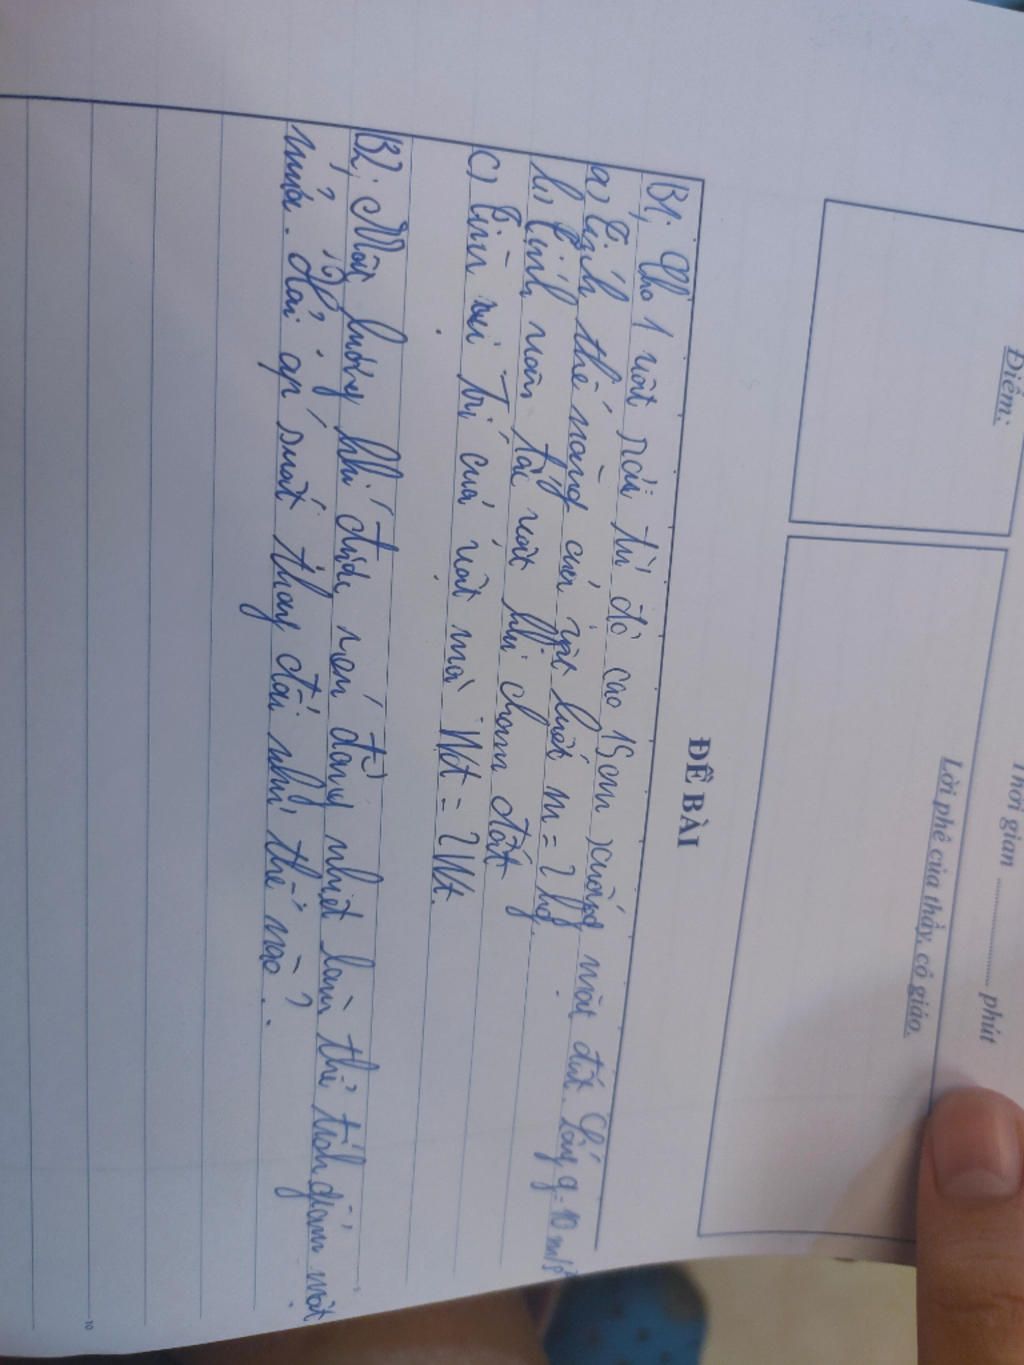 Thời gian .................. phút
Điểm:
Lời phê của thầy, cô giáo.
ĐỀ BÀI
B1: Cho 1 vật rơi từ độ cao 15cm xuống mặt đất. Lấy g=10 m/s²
a) Tính thế năng của vật biết m = 2kg.
b) Tính vận tốc vật khi chạm đất
c) Tìm vị trí của vật mà Wt = 2Wt.
B2: Một lượng khí được nén đẳng nhiệt làm thể tích giảm một
nửa. Hỏi áp suất thay đổi như thế nào?.
10